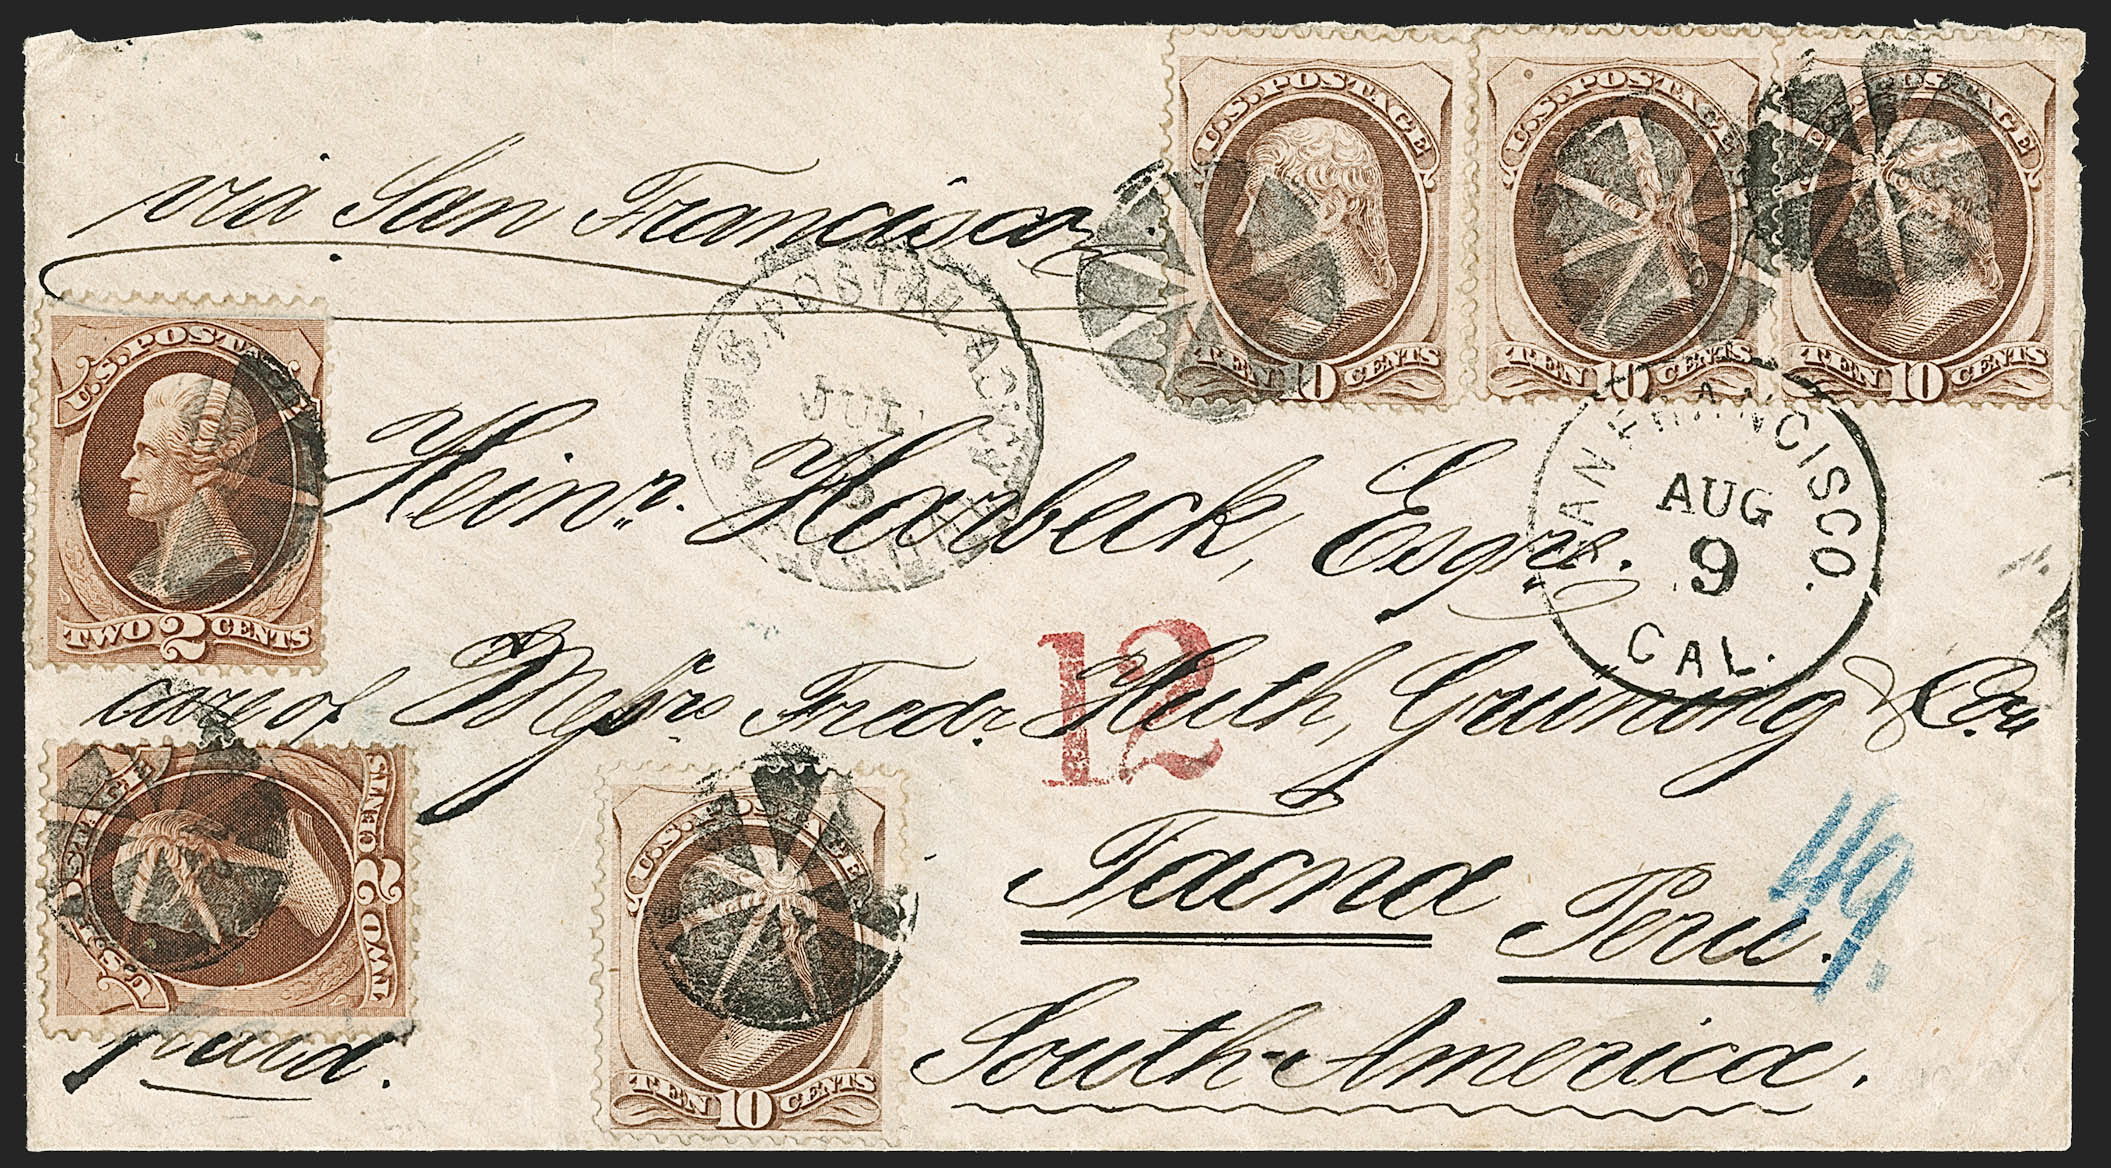 U.S. POSTAGE TEN 10 CENTS
U.S. POSTAGE TEN 10 CENTS
U.S. POSTAGE TEN 10 CENTS
via San Francisco
U.S. POSTAL AGCY.
JUL
U.S. POSTAGE
TWO 2 CENTS
SAN FRANCISCO
AUG
9
CAL.
Heinr. Harbeck, Esqre.
care of Messrs. Fredr. Huth, Gruning & Co.
12
U.S. POSTAGE
TWO 2 CENTS
U.S. POSTAGE
TEN 10 CENTS
Tacna Peru.
119.
South-America.
paid.